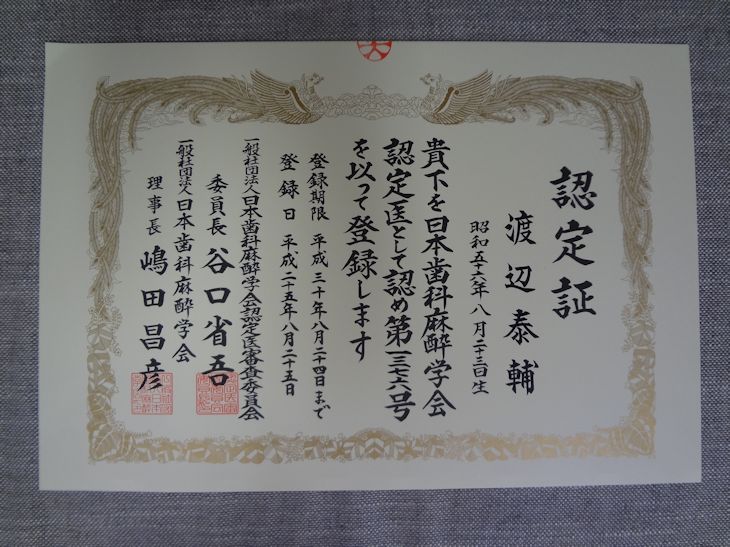 認定証
渡辺泰輔
昭和五十六年八月二十三日生
貴下を日本歯科麻酔学会
認定医として認め第一三七六号
を以って登録します
登録期限 平成三十年八月二十四日まで
登録日 平成二十五年八月二十五日
一般社団法人日本歯科麻酔学会認定医審査委員会
委員長 谷口省吾
一般社団法人日本歯科麻酔学会
理事長 嶋田昌彦